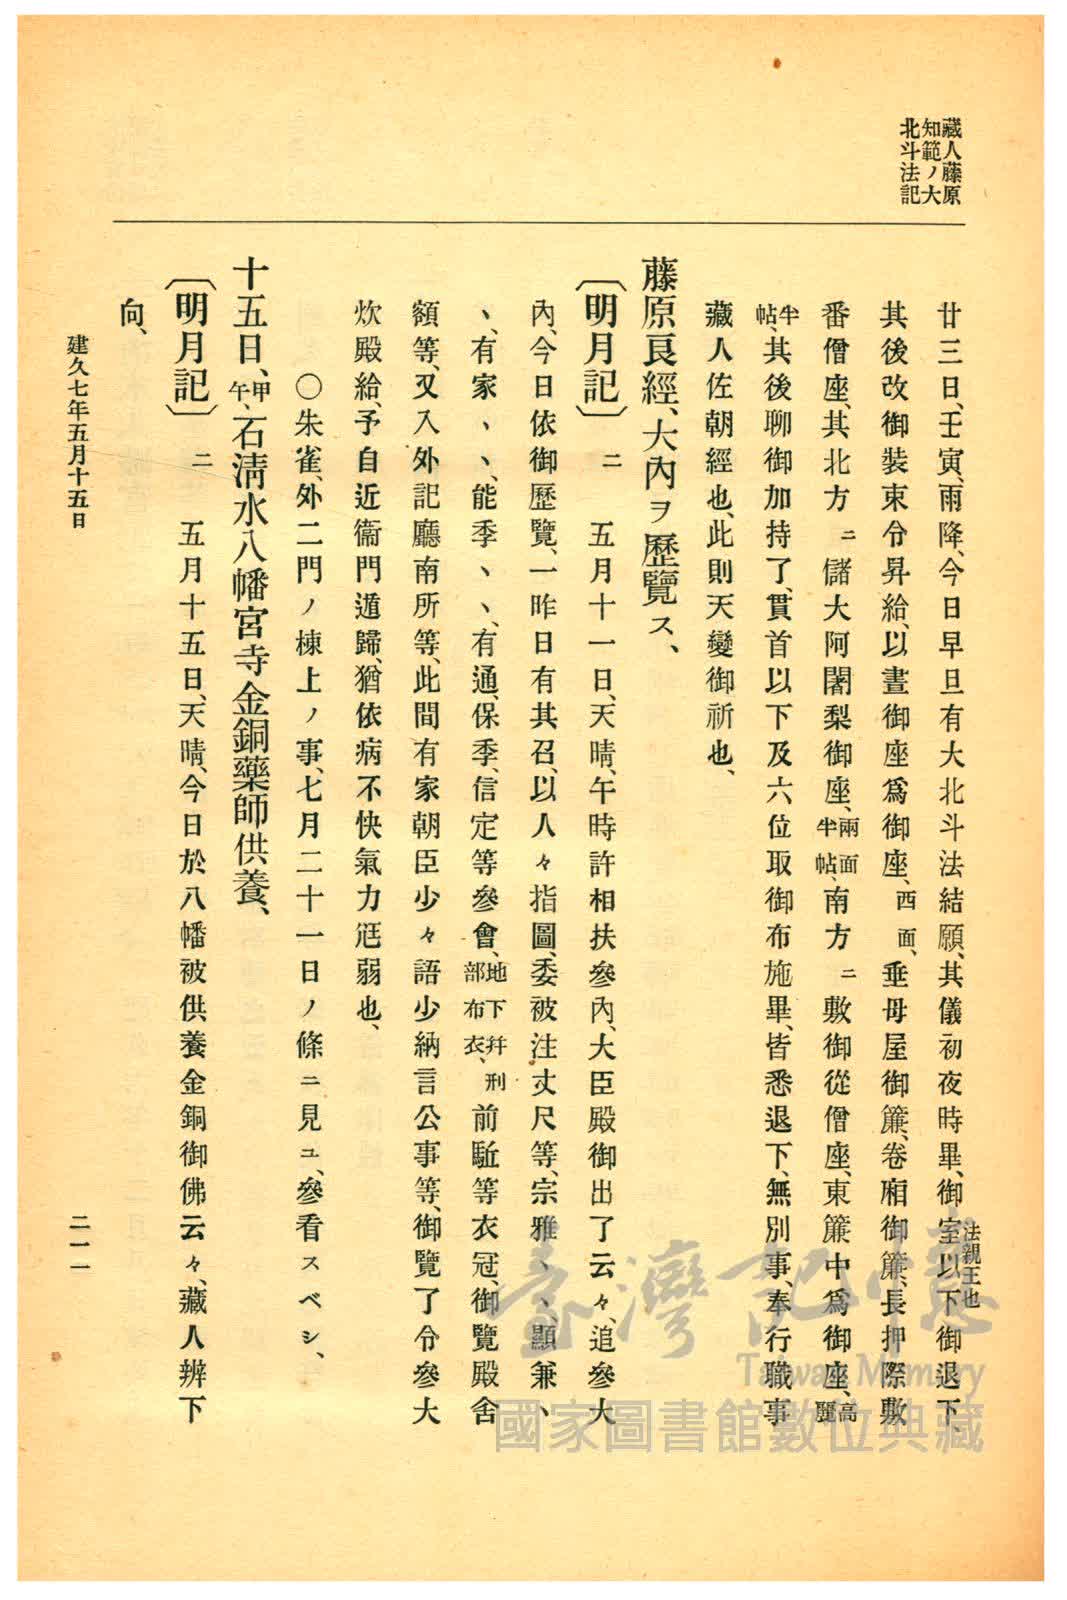 藏人藤原
知範ノ大
北斗法記
廿三日、壬寅、雨降、今日早旦有大北斗法結願、其儀初夜時畢、御室以下御退下、
法親王也
其後改御裝束令昇給、以晝御座爲御座、西面、垂母屋御簾、卷廂御簾、長押際敷
番僧座、其北方ニ儲大阿闍梨御座、兩面半帖、南方ニ敷御從僧座、東簾中爲御座、高麗
半帖、其後聊御加持了、貫首以下及六位取御布施畢、皆悉退下、無別事、奉行職事
藏人佐朝經也、此則天變御祈也、
藤原良經、大內ヲ歷覽ス、
〔明月記〕 二 五月十一日、天晴、午時許相扶參內、大臣殿御出了云々、追參大
內、今日依御歷覽、一昨日有其召、以人々指圖、委被注丈尺等、宗雅、、顯兼、
、有家、、能季、、有通、保季、信定等參會、地下幷刑部布衣、前駈等衣冠、御覽殿舍
額等、又入外記廳南所等、此間有家朝臣少々語少納言公事等、御覽了令參大
炊殿給、予自近衞門遁歸、猶依病不快氣力尩弱也、
〇朱雀、外二門ノ棟上ノ事、七月二十一日ノ條ニ見ユ、參看スベシ、
十五日、甲午、石淸水八幡宮寺金銅藥師供養、
〔明月記〕 二 五月十五日、天晴、今日於八幡被供養金銅御佛云々、藏人辨下
向、
建久七年五月十五日
二一一
臺灣記憶
Taiwan Memory
國家圖書館數位典藏